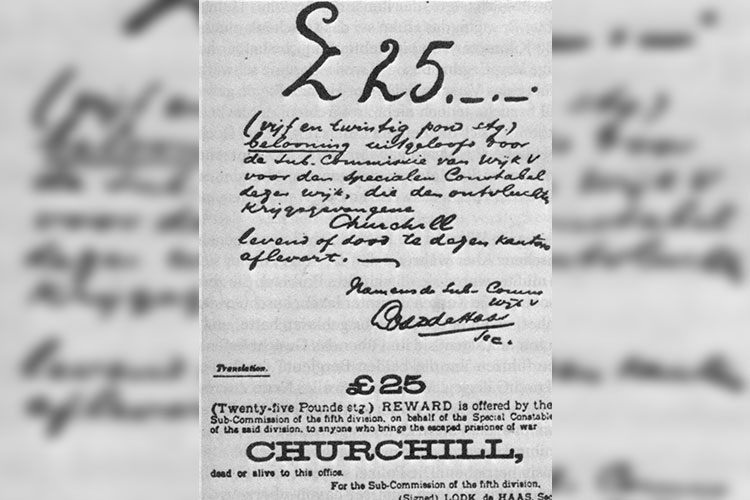 £ 25.-.-.
(vijf en twintig pond stg.)
belooning uitgeloofd door
de Sub-Commissie van Wijk V
voor den specialen Constabel
dezer wijk, die den ontvluchte
Krijgsgevangene
Churchill
levend of dood te dezen kantore
aflevert.—
Namens de Sub-Comm
Wijk V
Lodk de Haas
Sec.
Translation.
£25
(Twenty-five Pounds stg.) REWARD is offered by the
Sub-Commission of the fifth division, on behalf of the Special Constable
of the said division, to anyone who brings the escaped prisoner of war
CHURCHILL,
dead or alive to this office.
For the Sub-Commission of the fifth division.
(Signed) LODK. de HAAS, Sec